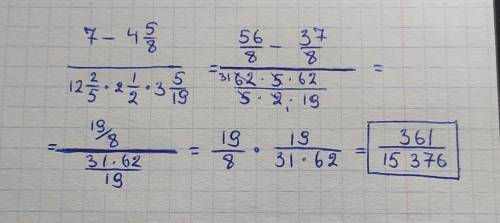 7 - 4 5/8
12 2/5 · 2 1/2 · 3 5/19
= 56/8 - 37/8
31 62 · 5 · 62
5 · 2 · 19
=
= 19/8
31 · 62
19
= 19/8 · 19/(31 · 62) = 361/15 376